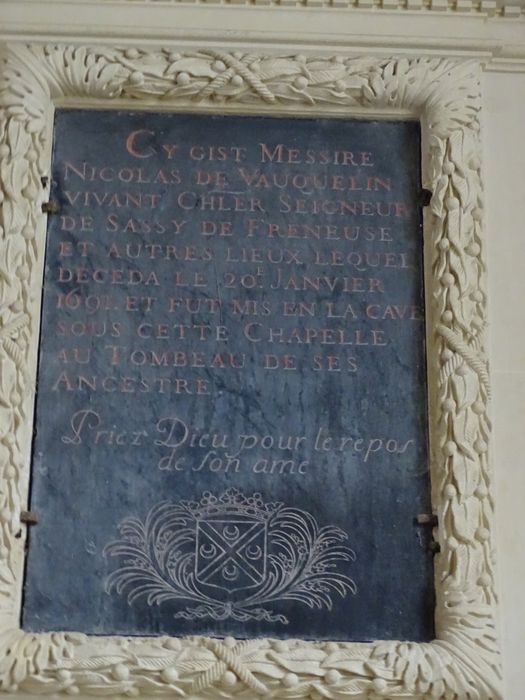 CY GIST MESSIRE
NICOLAS DE VAUQUELIN
VIVANT CHLER SEIGNEUR
DE SASSY DE FRENEUSE
ET AUTRES LIEUX LEQUEL
DECEDA LE 20.E JANVIER
1691. ET FUT MIS EN LA CAVE
SOUS CETTE CHAPELLE
AU TOMBEAU DE SES
ANCESTRE
Priez Dieu pour le repos
de son ame